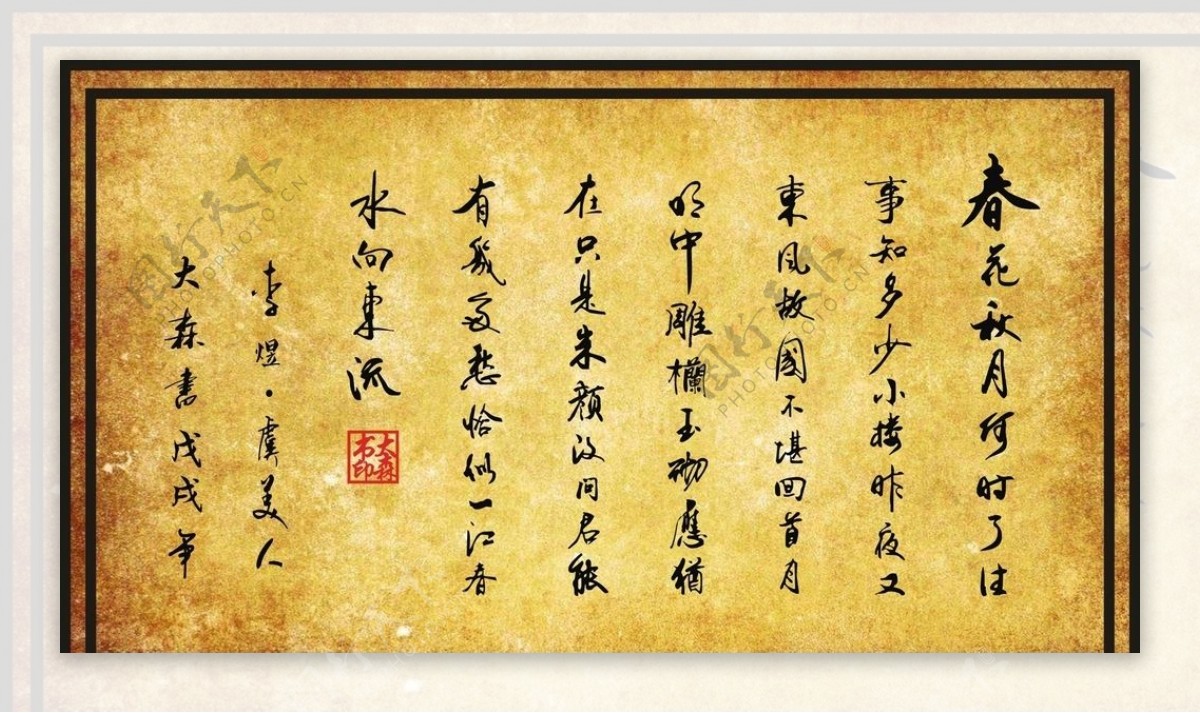 春花秋月何时了往
事知多少小楼昨夜又
東风故國不堪回首月
明中雕欄玉砌應猶
在只是朱颜改问君能
有幾多愁恰似一江春
水向東流
大森书印
李煜·虞美人
大森書戊戌年
图行天下
PHOTOPHOTO.CN
图行天下
PHOTOPHOTO.CN